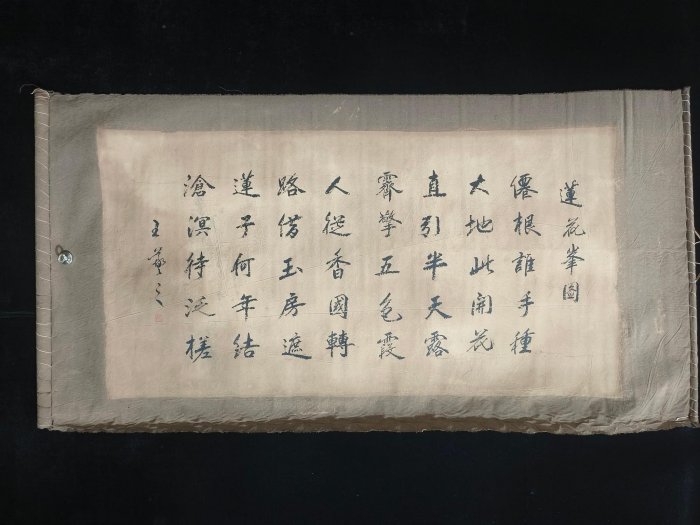 蓮花峯圖
僊根誰手種
大地此開花
直引半天露
霽擎五色霞
人從香國轉
路借玉房遮
蓮子何年結
滄溟待泛槎
王羲之